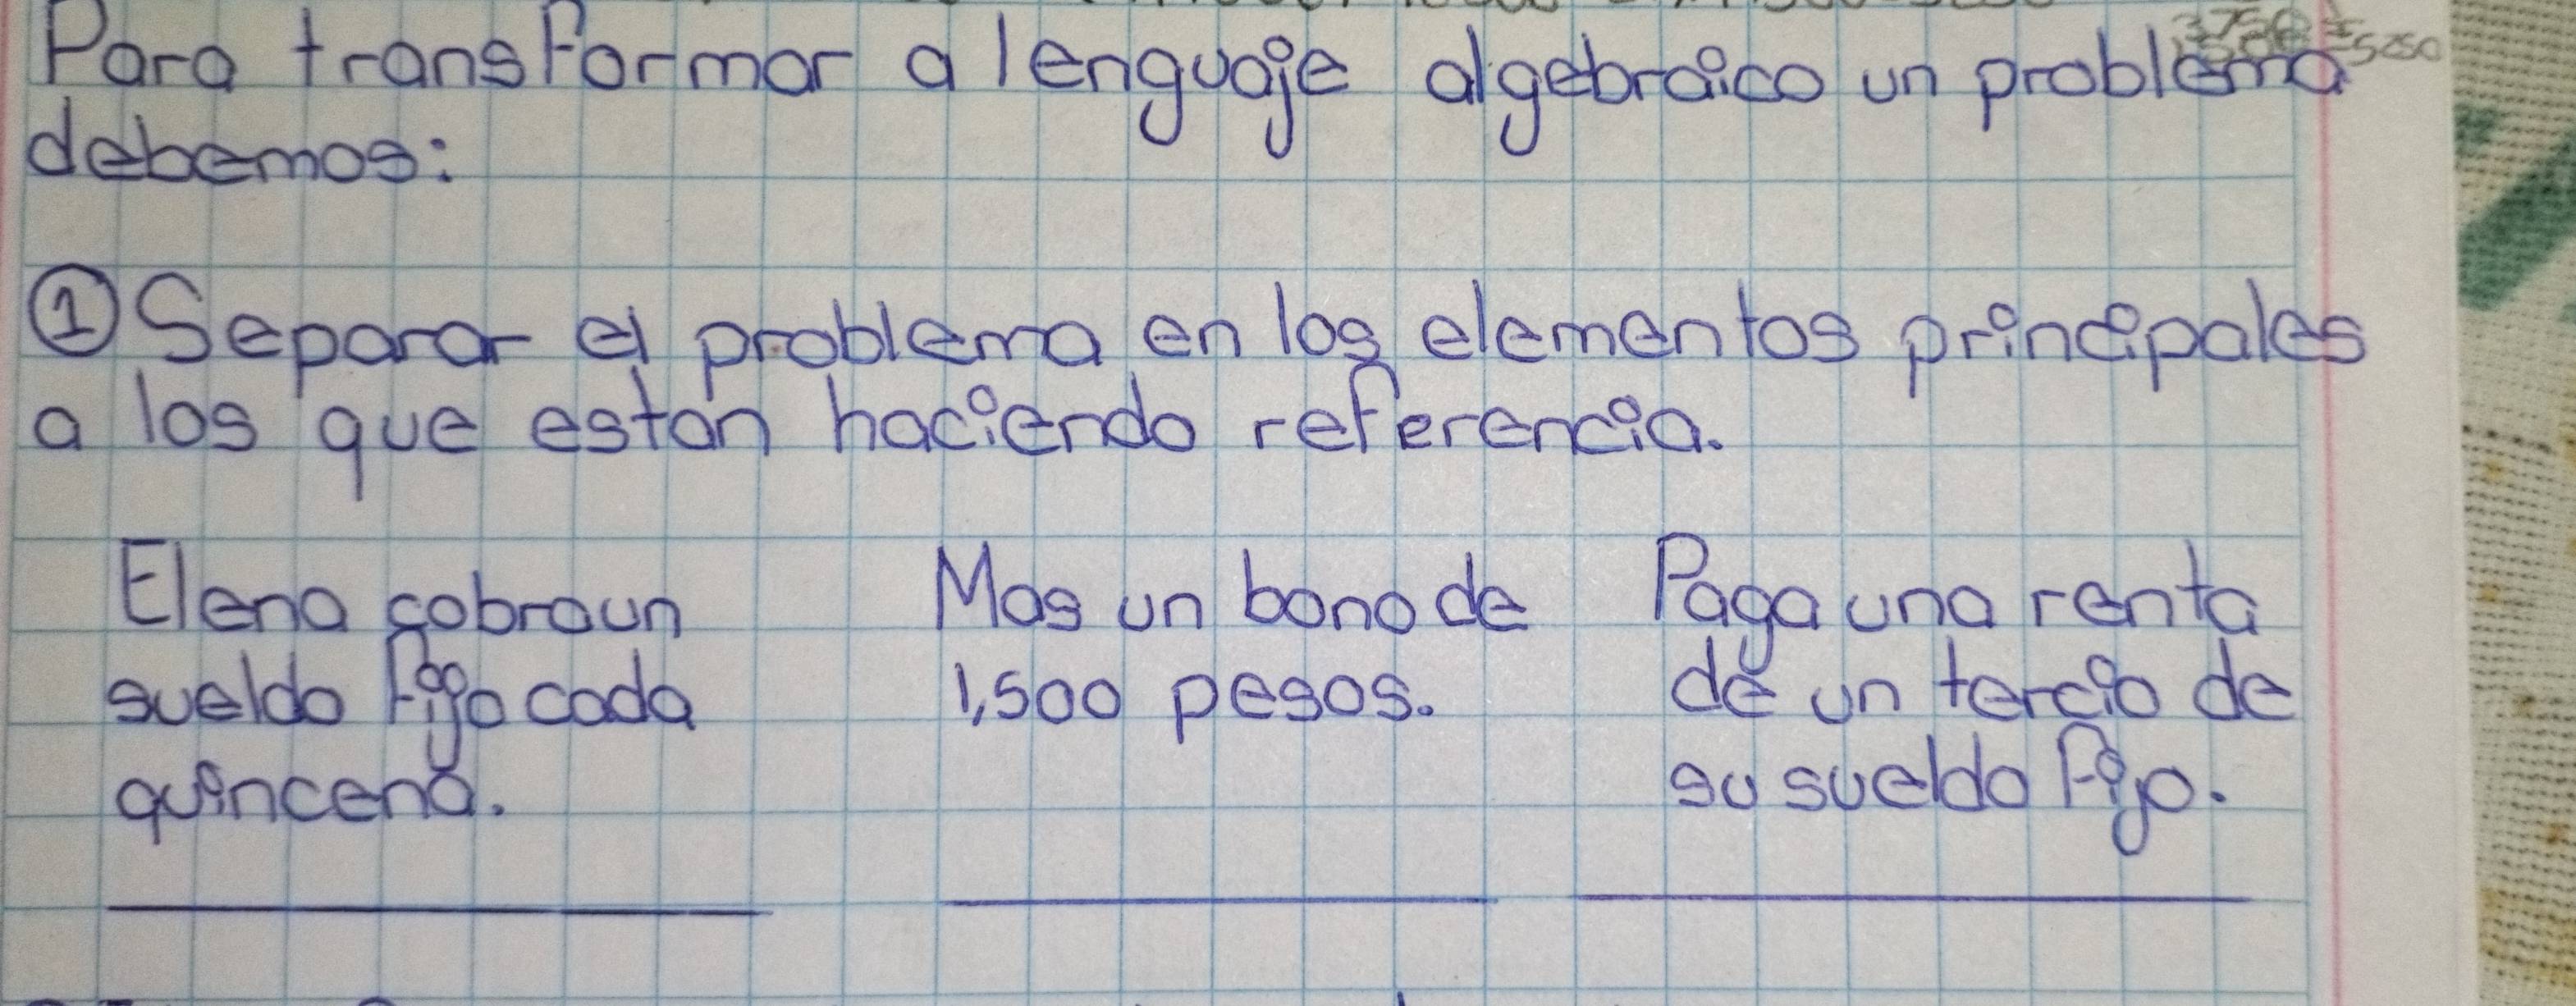 Para transformar a lenguaje algebraico un problema
debemos:
① Separar el problema en los elementos principales
a los que estan haciendo referencia.
Elena cobra un
sueldo fijo cada
quincena.
Mas un bono de
1,500 pesos.
Paga una renta
de un tercio de
su sueldo fijo.